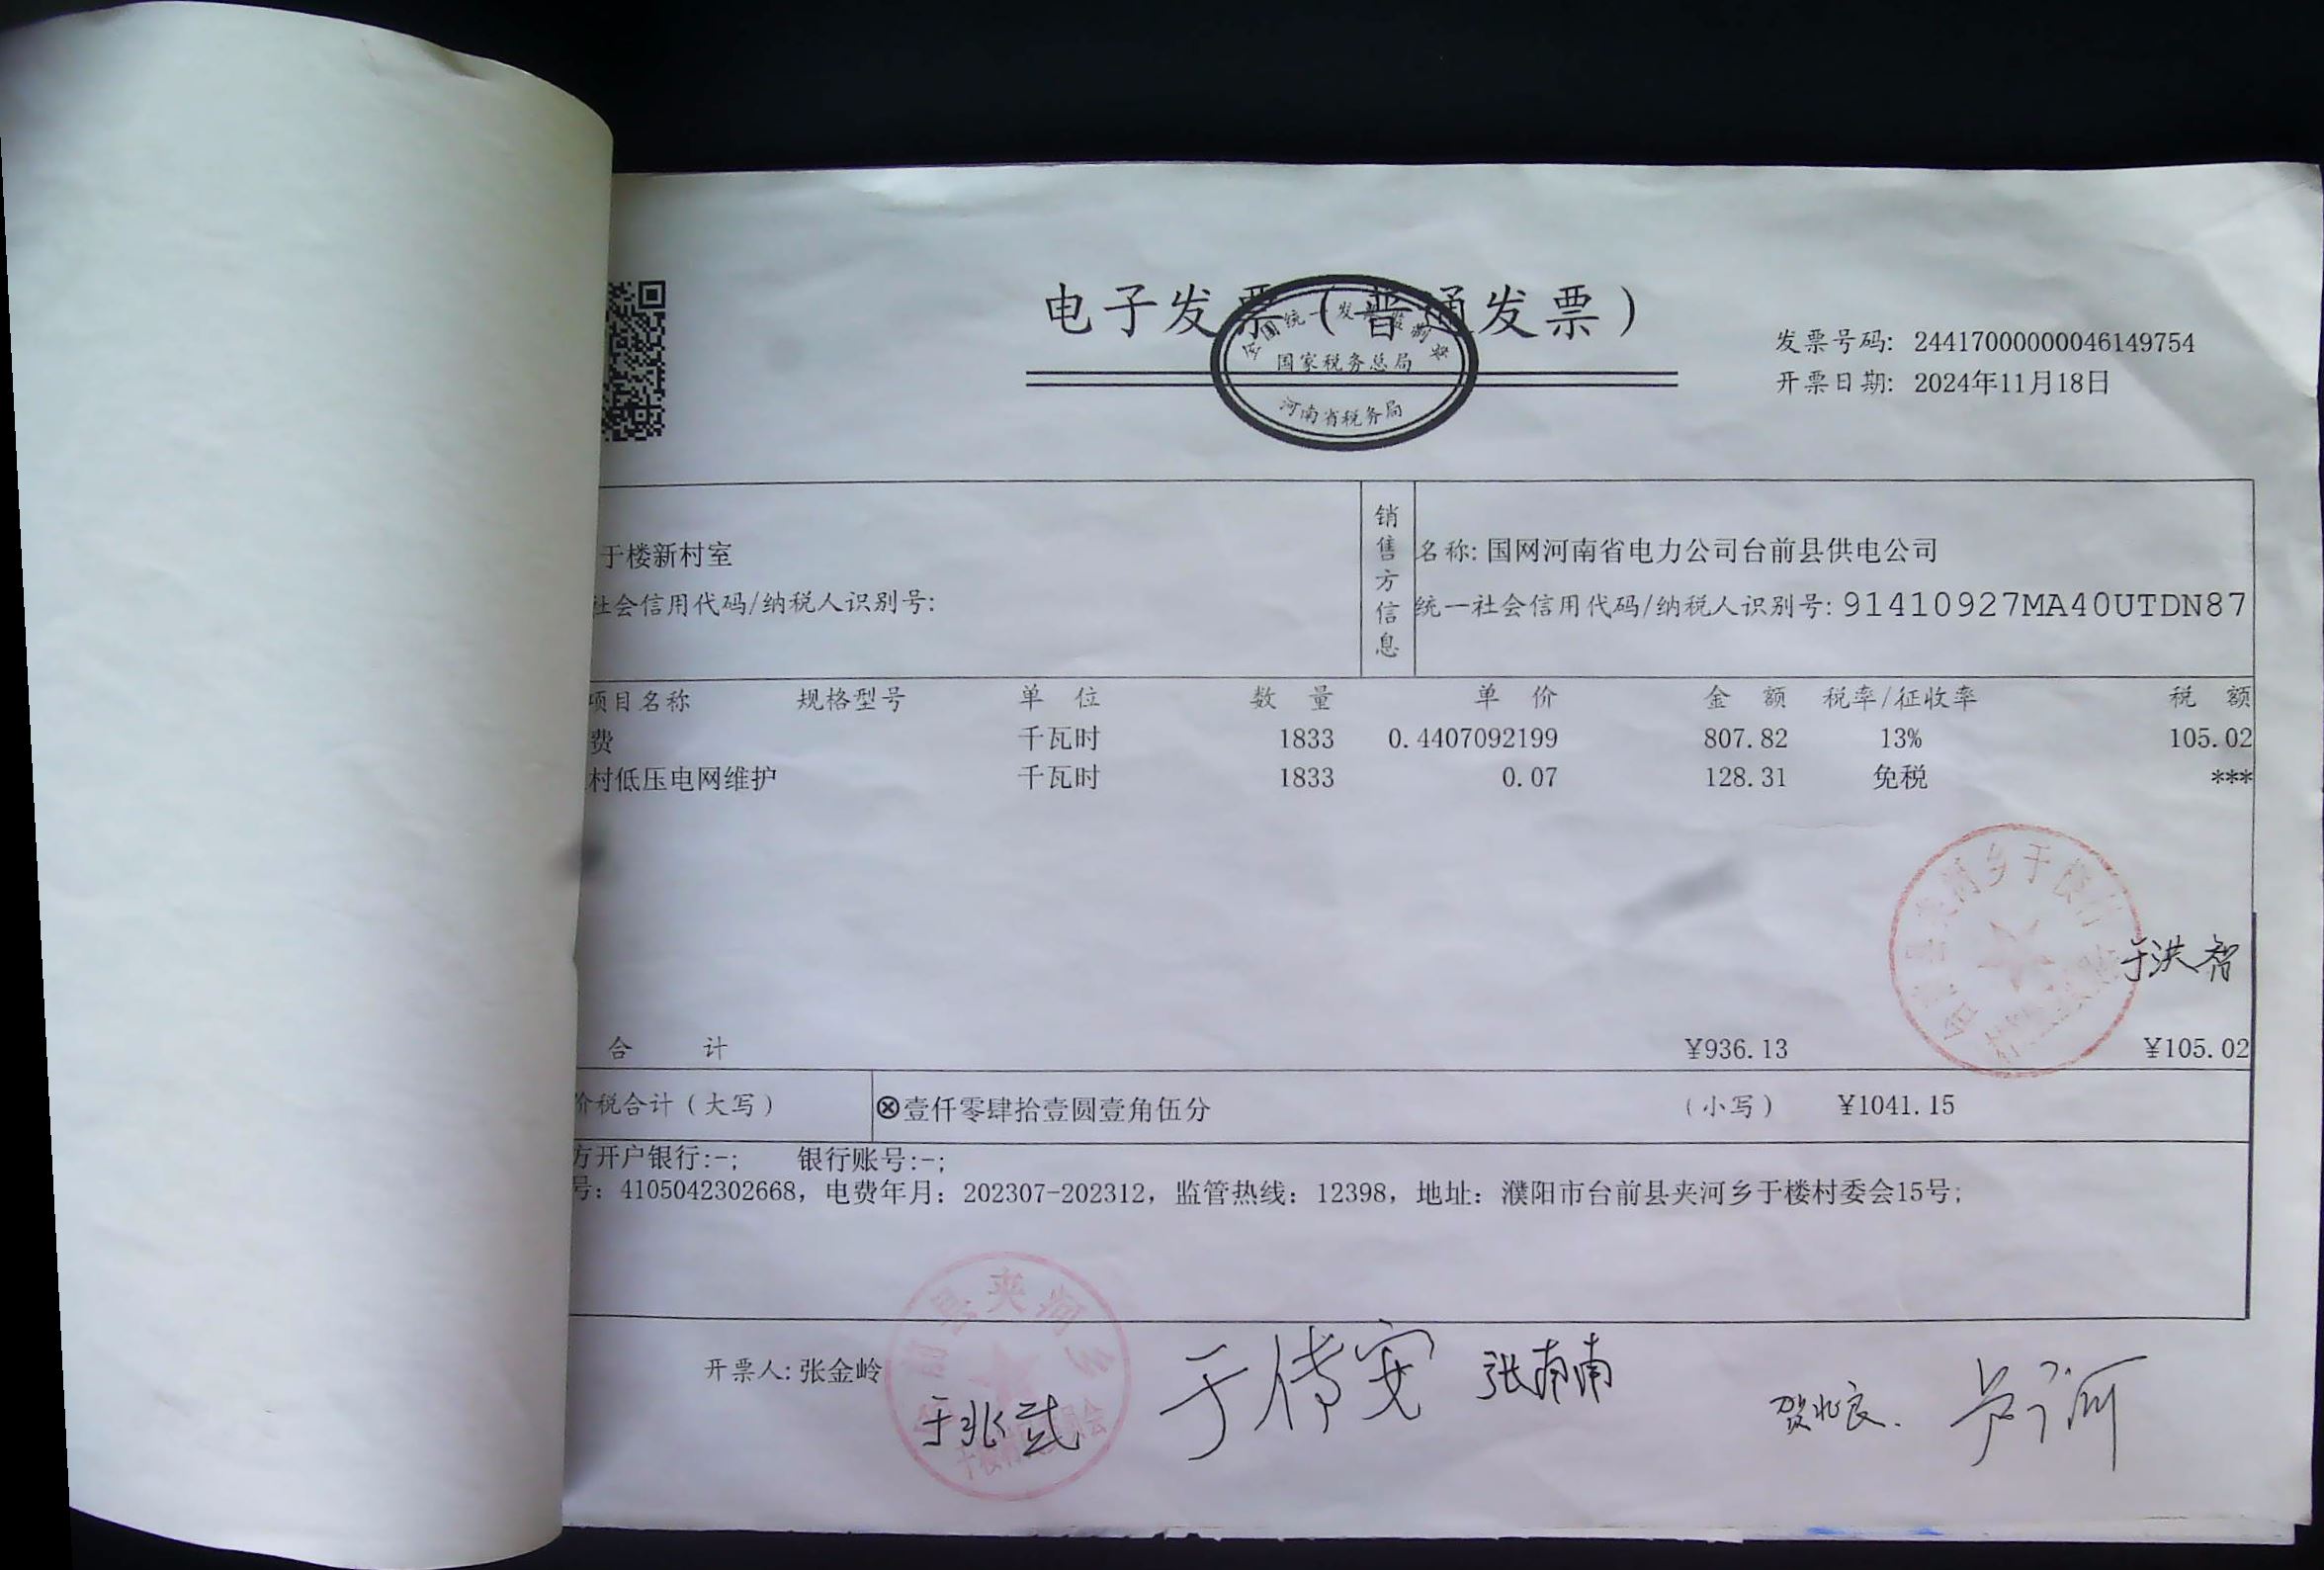 电子发票（普通发票）
全国统一发票监制章
国家税务总局
河南省税务局
发票号码: 24417000000046149754
开票日期: 2024年11月18日
于楼新村室
社会信用代码/纳税人识别号:
销售方信息
名称: 国网河南省电力公司台前县供电公司
统一社会信用代码/纳税人识别号: 91410927MA40UTDN87
项目名称 规格型号 单位 数量 单价 金额 税率/征收率 税额
费 千瓦时 1833 0.4407092199 807.82 13% 105.02
村低压电网维护 千瓦时 1833 0.07 128.31 免税 ***
于洪智
合计 ¥936.13 ¥105.02
价税合计（大写） ⊗壹仟零肆拾壹圆壹角伍分 （小写） ¥1041.15
方开户银行:-; 银行账号:-;
号: 4105042302668, 电费年月: 202307-202312, 监管热线: 12398, 地址: 濮阳市台前县夹河乡于楼村委会15号;
开票人: 张金岭
于兆武 于传宽 张南南 贺兆良.